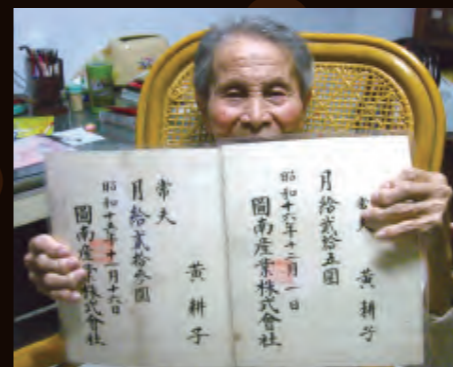 常夫 黃耕子
月給貳拾五圓
昭和十六年十二月一日
圖南產業株式會社
黃耕子
常夫
月給貳拾參圓
昭和十五年十一月十六日
圖南產業株式會社